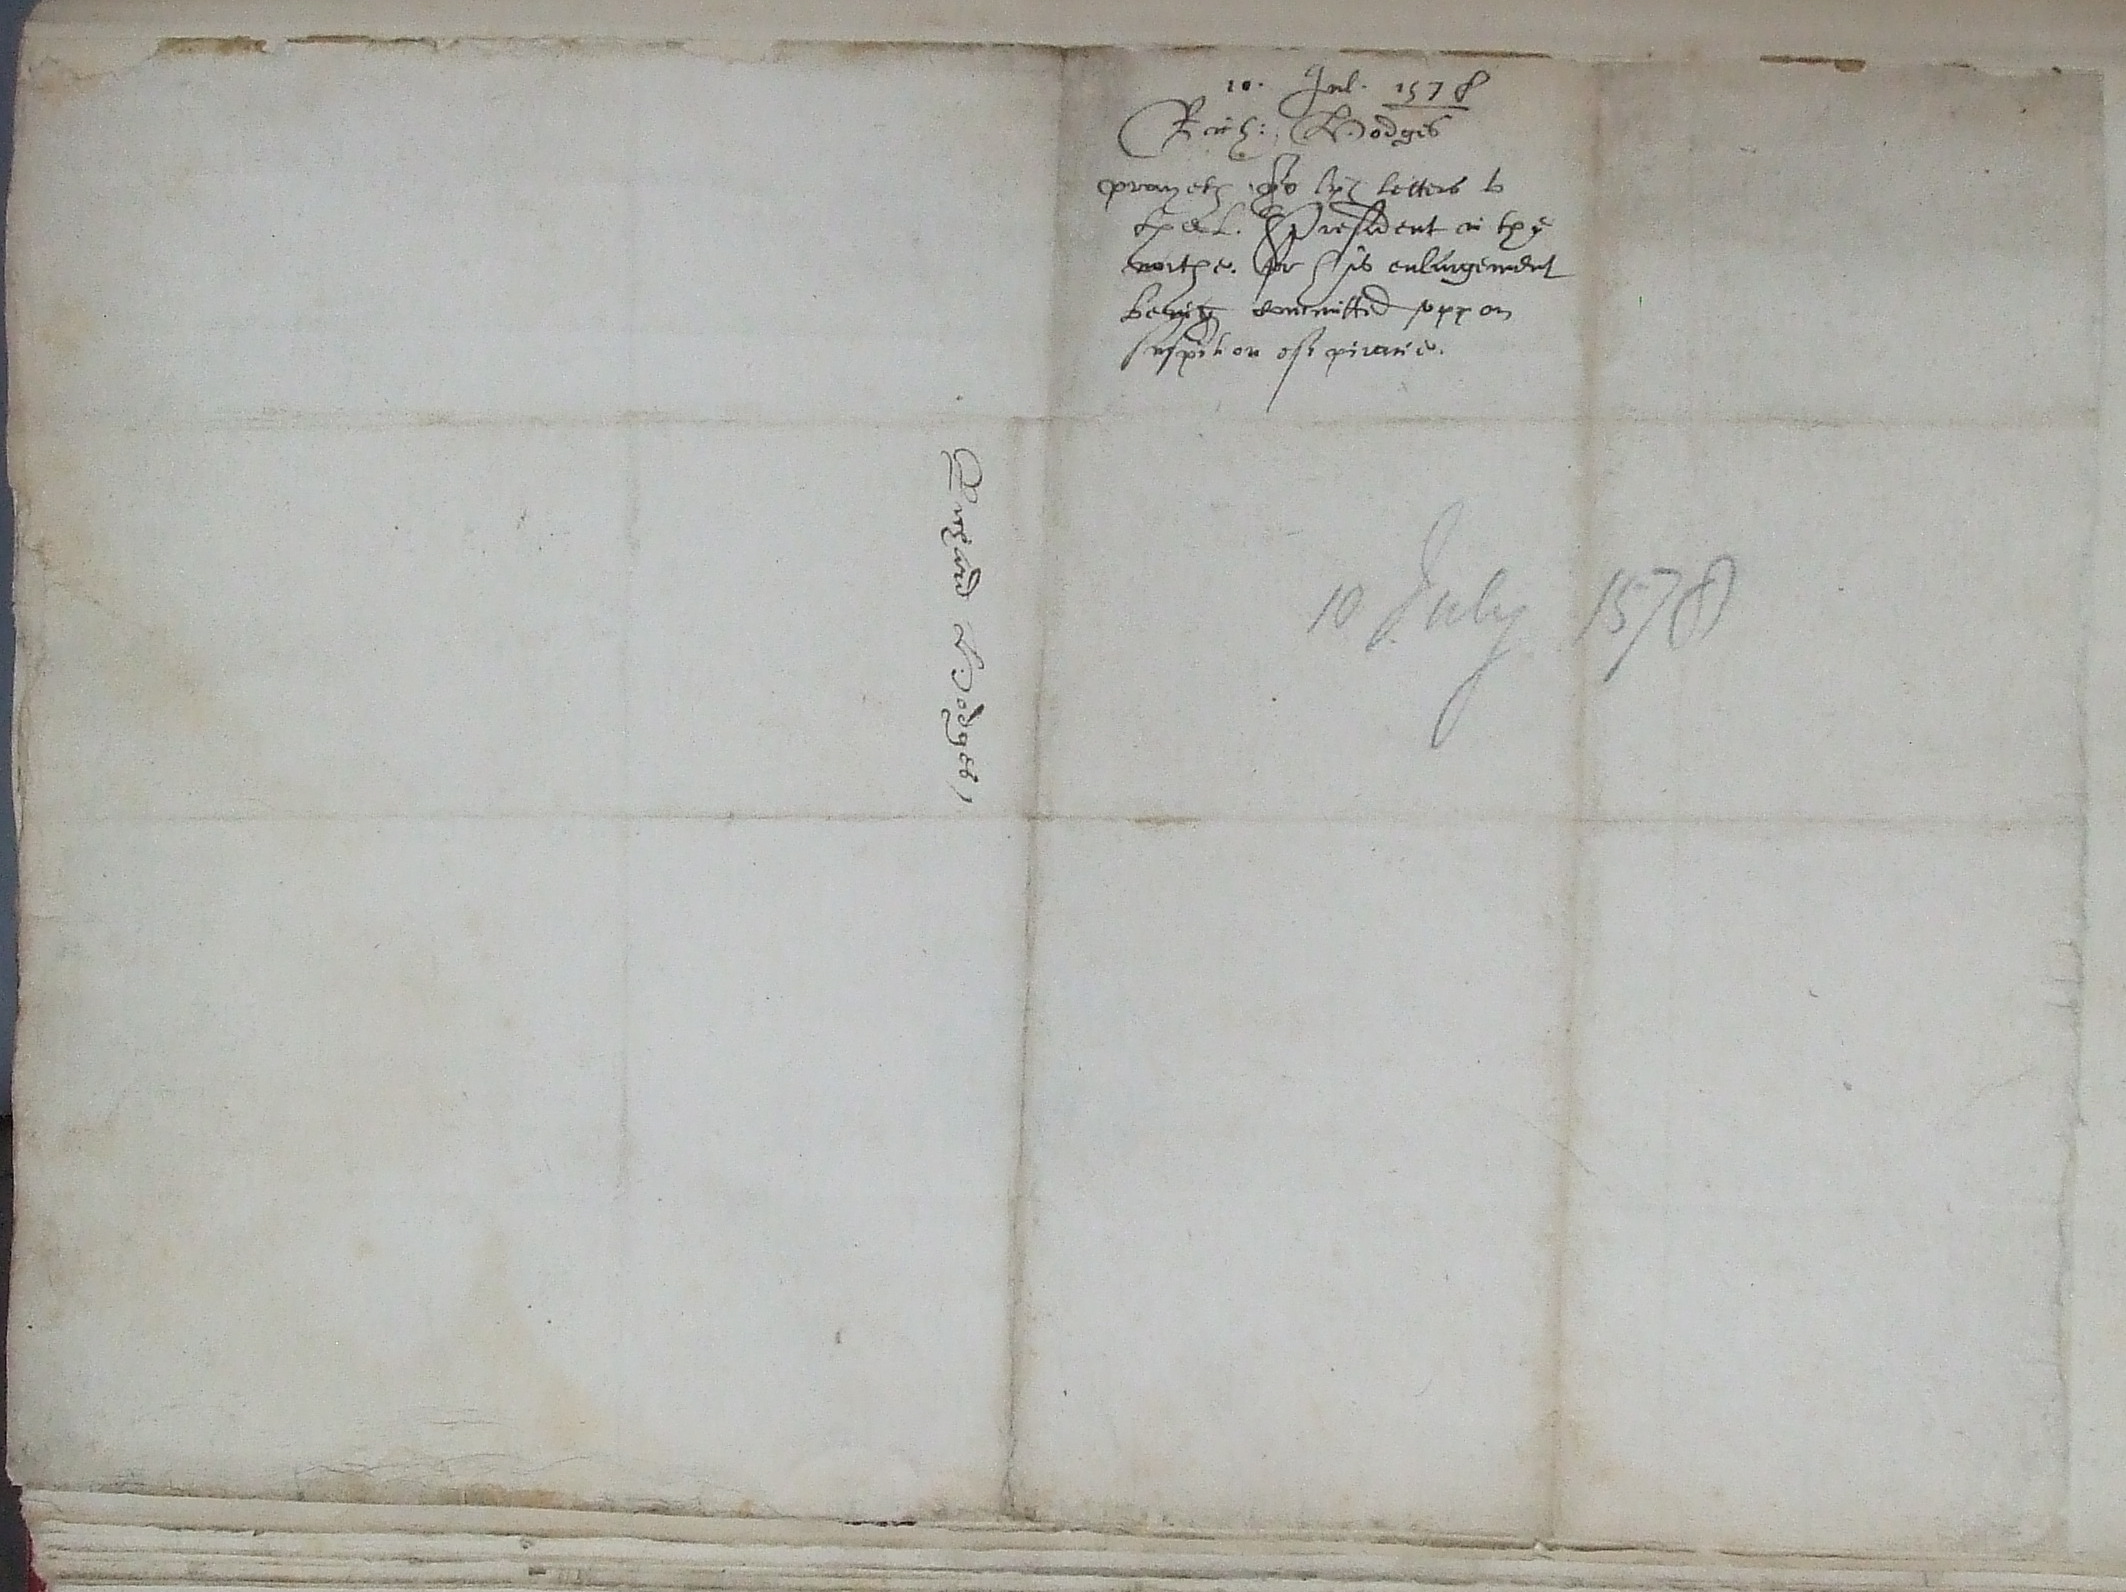 10. Jul. 1578
Rich: Hodges
prayeth letters to
the L. President in the
northe. for his enlargement
being committed uppon
suspition of piracie.
Richard Hodges
10 July 1578